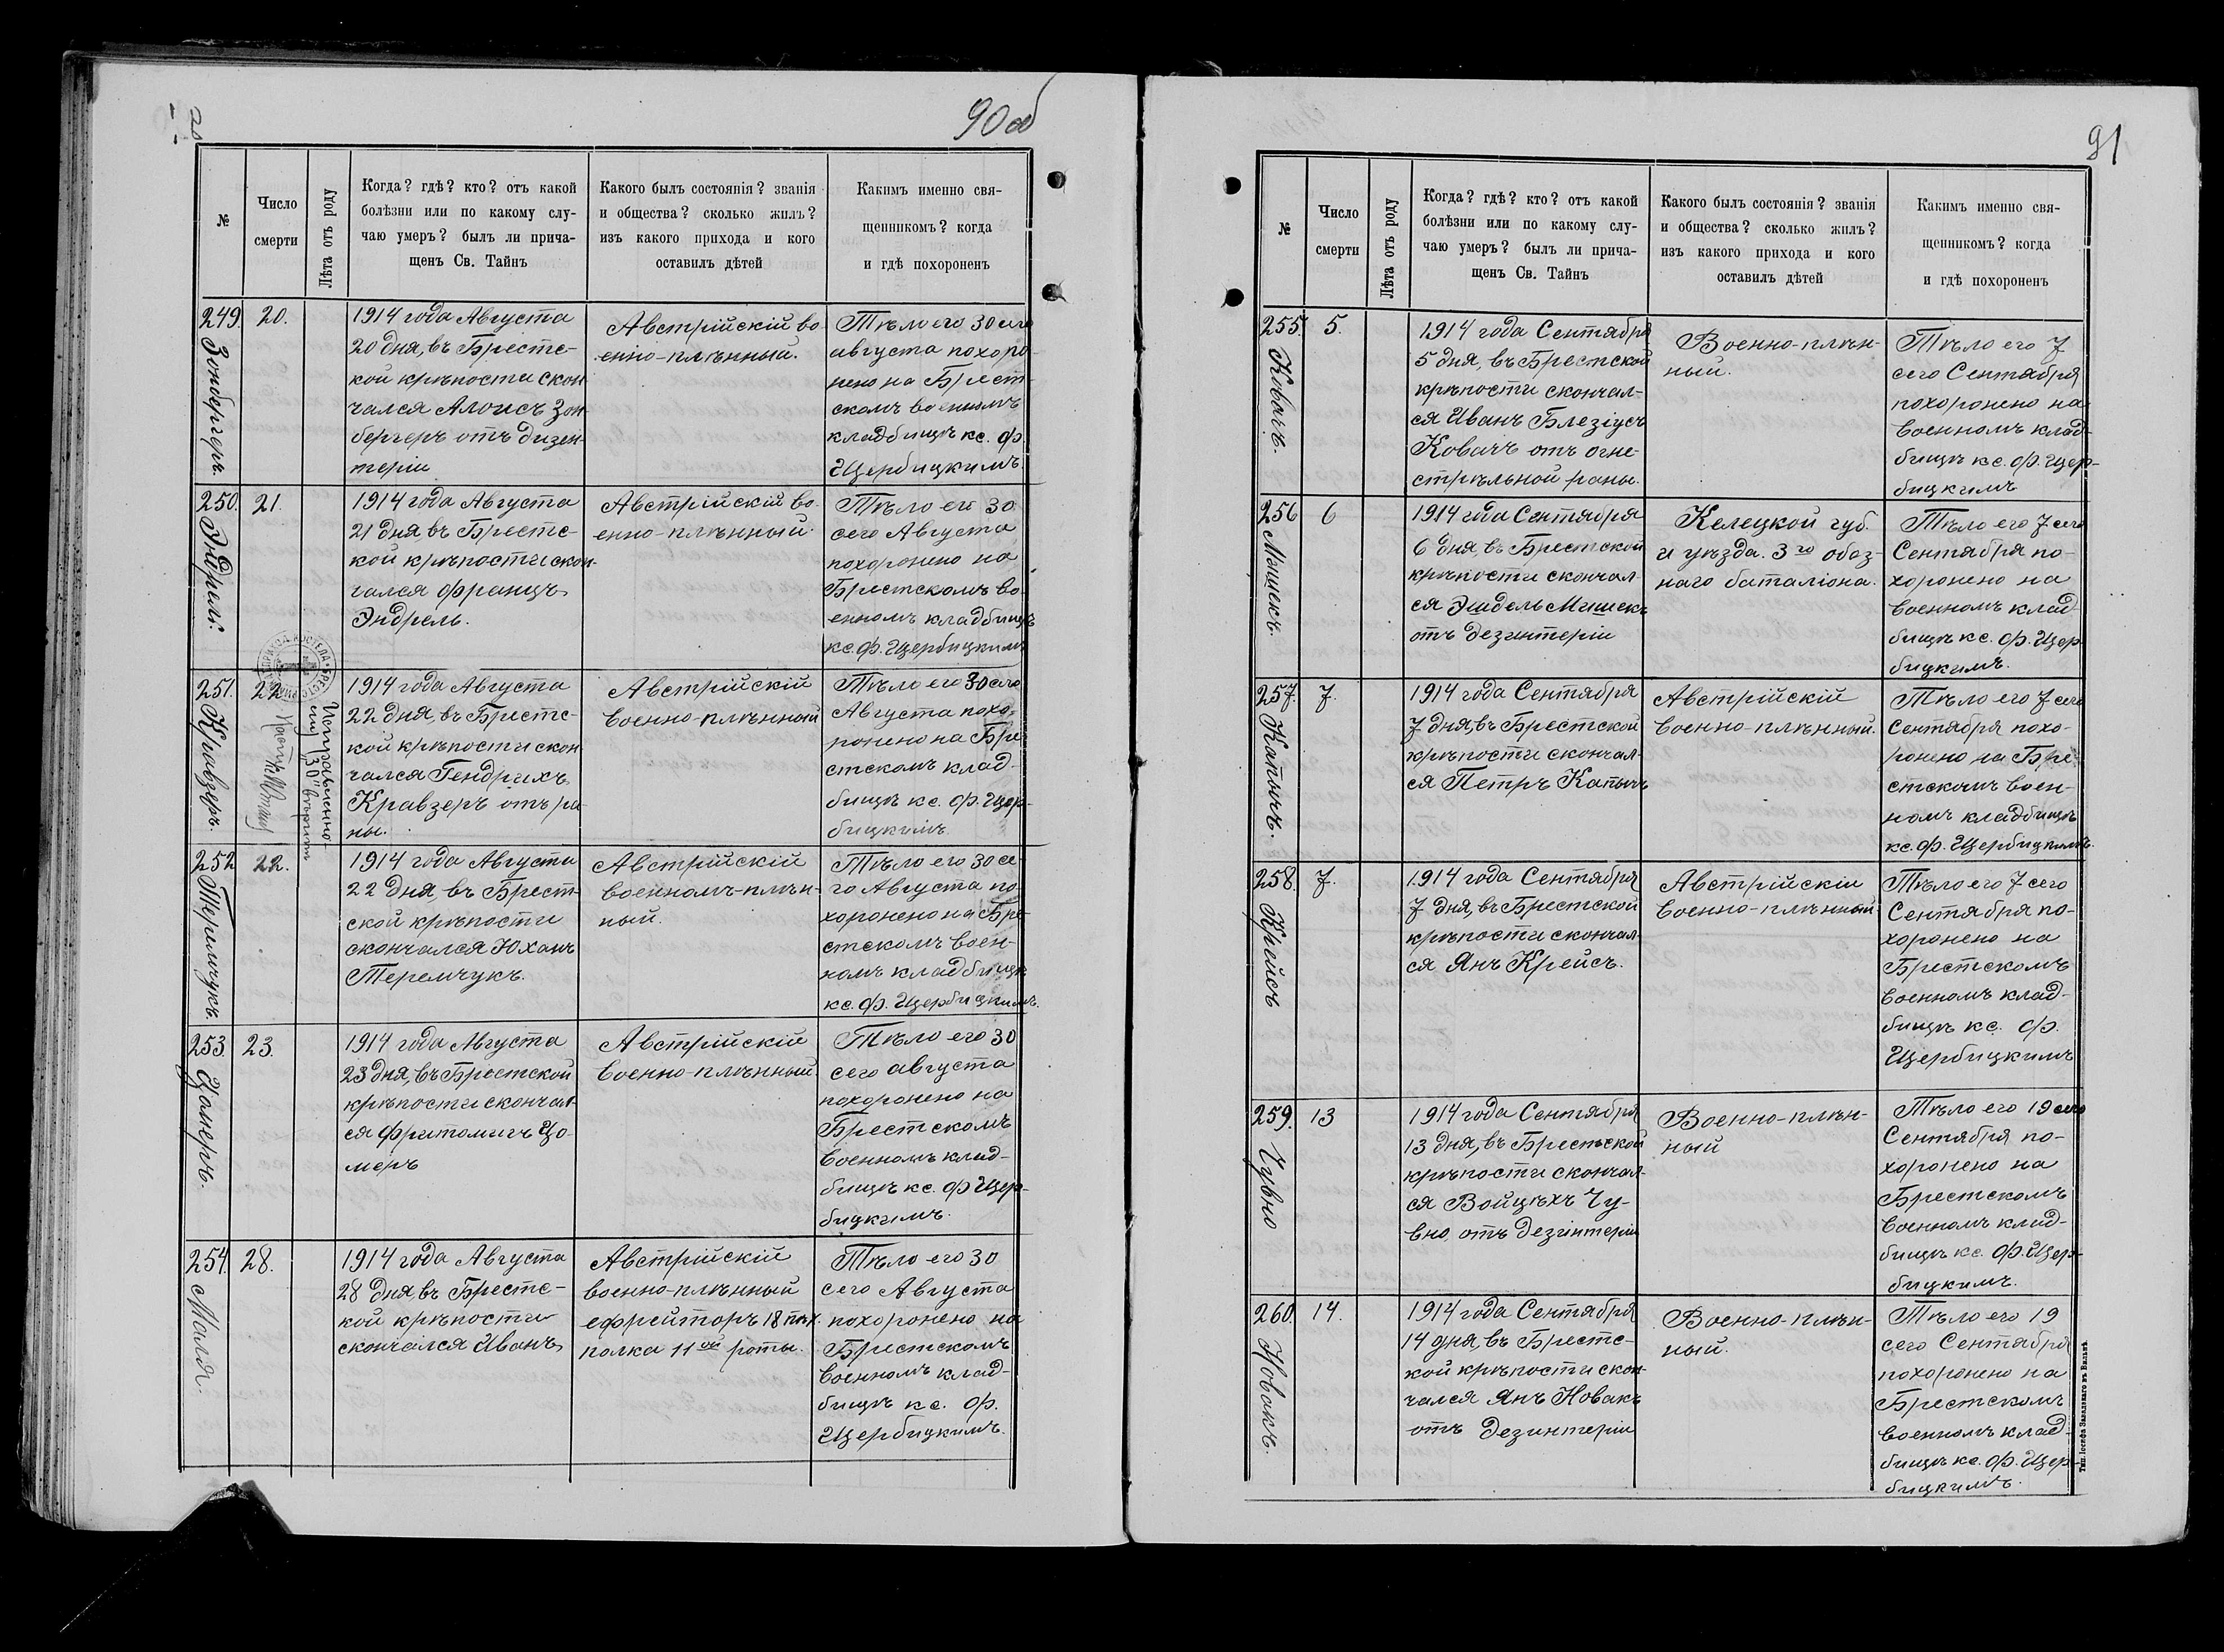 90 об
№
Число
смерти
Лѣта отъ роду
Когда? гдѣ? кто? отъ какой
болѣзни или по какому слу-
чаю умеръ? былъ ли прича-
щенъ Св. Тайнъ
Какого былъ состоянія? званія
и общества? сколько жилъ?
изъ какого прихода и кого
оставилъ дѣтей
Какимъ именно свя-
щенникомъ? когда
и гдѣ похороненъ
249.
Зонбергеръ.
20.
1914 года Августа
20 дня, въ Брестс-
кой крѣпости скон
чался Алоисъ Зон
бергеръ отъ дизен
теріи
Австрійскій во
енно-плѣнный.
Тѣло его 30 сего
августа похоро-
нено на Брест-
скомъ военномъ
кладбищѣ кс. Ф.
Щербицкимъ.
250.
Эндрель.
21.
1914 года Августа
21 дня въ Брестс-
кой крѣпости скон-
чался Францъ
Эндрель.
Австрійскій во-
енно-плѣнный
Тѣло его 30
сего Августа
похоронено на
Брестскомъ во-
енномъ кладбищѣ
кс. Ф. Щербицкимъ
251.
Кравзеръ.
22
Исправленно
"30" вѣрить
1914 года Августа
22 дня, въ Брестс-
кой крѣпости скон
чался Гендрихъ
Кравзеръ отъ ра-
ны.
Австрійскій
военно-плѣнный
Тѣло его 30 сего
Августа похо-
ронено на Бре
стскомъ клад-
бищѣ кс. Ф. Щер-
бицкимъ
252
Теремчукъ.
22.
1914 года Августа
22 дня, въ Брест-
ской крѣпости
скончался Юханъ
Теремчукъ.
Австрійскій
военномъ-плѣн-
ный.
Тѣло его 30 се-
го Августа по-
хоронено на Бре-
стскомъ воен-
номъ кладбищѣ
кс. Ф. Щербицкимъ.
253.
Цомеръ.
23.
1914 года Августа
23 дня, въ Брестской
крѣпости скончал-
ся Фритомигъ Цо-
меръ
Австрійскій
военно-плѣнный.
Тѣло его 30
сего августа
похоронено на
Брестскомъ
военномъ клад-
бищѣ кс. Ф Щер-
бицкимъ.
254.
Маля.
28.
1914 года Августа
28 дня въ Брестс-
кой крѣпости
скончался Иванъ
Австрійскій
военно-плѣнный
ефрейторъ 18 пѣх.
полка 11ой роты.
Тѣло его 30
сего Августа
похоронено на
Брестскомъ
военномъ клад-
бищѣ кс. Ф.
Щербицкимъ.
91
№
Число
смерти
Лѣта отъ роду
Когда? гдѣ? кто? отъ какой
болѣзни или по какому слу-
чаю умеръ? былъ ли прича-
щенъ Св. Тайнъ
Какого былъ состоянія? званія
и общества? сколько жилъ?
изъ какого прихода и кого
оставилъ дѣтей
Какимъ именно свя-
щенникомъ? когда
и гдѣ похороненъ
255.
Ковачъ.
5.
1914 года Сентября
5 дня, въ Брестской
крѣпости скончал-
ся Иванъ Блезіусъ
Ковачъ отъ огне-
стрѣльной раны.
Военно-плѣн-
ный.
Тѣло его 7
сего Сентября
похоронено на
военномъ клад-
бищѣ кс. Ф. Щер-
бицкимъ
256
Мышекъ.
6
1914 года Сентября
6 дня, въ Брестской
крѣпости скончал-
ся Эшдель Мишекъ
отъ дезинтеріи
Келецкой губ.
и уѣзда. 3го обоз-
наго баталіона.
Тѣло его 7 сего
Сентября по-
хоронено на
военномъ клад
бищѣ кс. Ф. Щер
бицкимъ.
257.
Капычъ.
7.
1914 года Сентября
7 дня, въ Брестской
крѣпости скончал-
ся Петръ Капычъ
Австрійскій
военно-плѣнный.
Тѣло его 7 сего
Сентября похо-
ронено на Бре-
стскомъ воен-
номъ кладбищѣ
кс. Ф. Щербицкимъ.
258.
Крейсъ
7.
1914 года Сентября
7 дня, въ Брестской
крѣпости скончал-
ся Янъ Крейсъ.
Австрійскій
военно-плѣнный
Тѣло его 7 сего
Сентября по-
хоронено на
Брестскомъ
военномъ клад-
бищѣ кс. Ф.
Щербицкимъ
259.
Чувно
13
1914 года Сентября
13 дня, въ Брестской
крѣпости скончал-
ся Войцѣхъ Чу-
вно, отъ дезинтеріи
Военно-плѣн-
ный
Тѣло его 19 сего
Сентября по-
хоронено на
Брестскомъ
военномъ клад-
бищѣ кс. Ф. Щер-
бицкимъ.
260.
Новакъ.
14.
1914 года Сентября
14 дня, въ Брестс-
кой крѣпости скон-
чался Янъ Новакъ
отъ дезинтеріи
Военно-плѣн-
ный.
Тѣло его 19
сего Сентября
похоронено на
Брестскомъ
военномъ клад-
бищѣ кс. Ф. Щер-
бицкимъ.
Тип. Іосифа Завадзкаго въ Вильнѣ